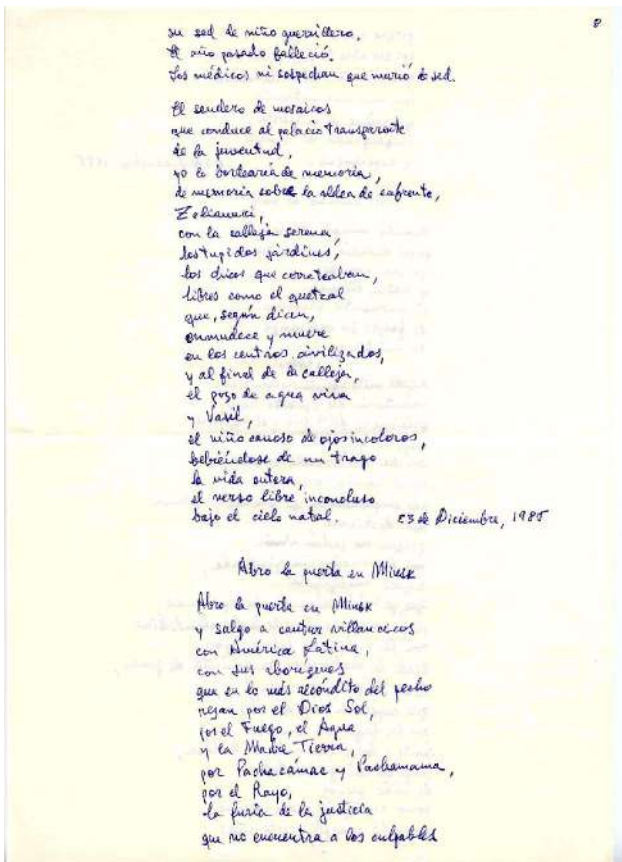 8
su sed de niño guerrillero.
El año pasado falleció.
Los médicos ni sospechan que murió de sed.
El sendero de mosaicos
que conduce al palacio transparente
de la juventud,
yo lo bordearía de memoria,
de memoria sobre la aldea de enfrente,
con la calleja serena,
los tupidos jardines,
los chicos que correteaban,
libres como el quetzal
que, según dicen,
enmudece y muere
en los centros civilizados,
y al final de la calleja,
el pozo de agua viva
y Vasil,
el niño canoso de ojos incoloros,
bebiéndose de un trago
la vida entera,
el verso libre inconcluso
bajo el cielo natal.
23 de Diciembre, 1985
Abro la puerta en Minsk
Abro la puerta en Minsk
y salgo a cantar villancicos
con América Latina,
con sus aborígenes
que en lo más recóndito del pecho
rezan por el Dios Sol,
por el Fuego, el Agua
y la Madre Tierra,
por Pachacámac y Pachamama,
por el Rayo,
la furia de la justicia
que no encuentra a los culpables